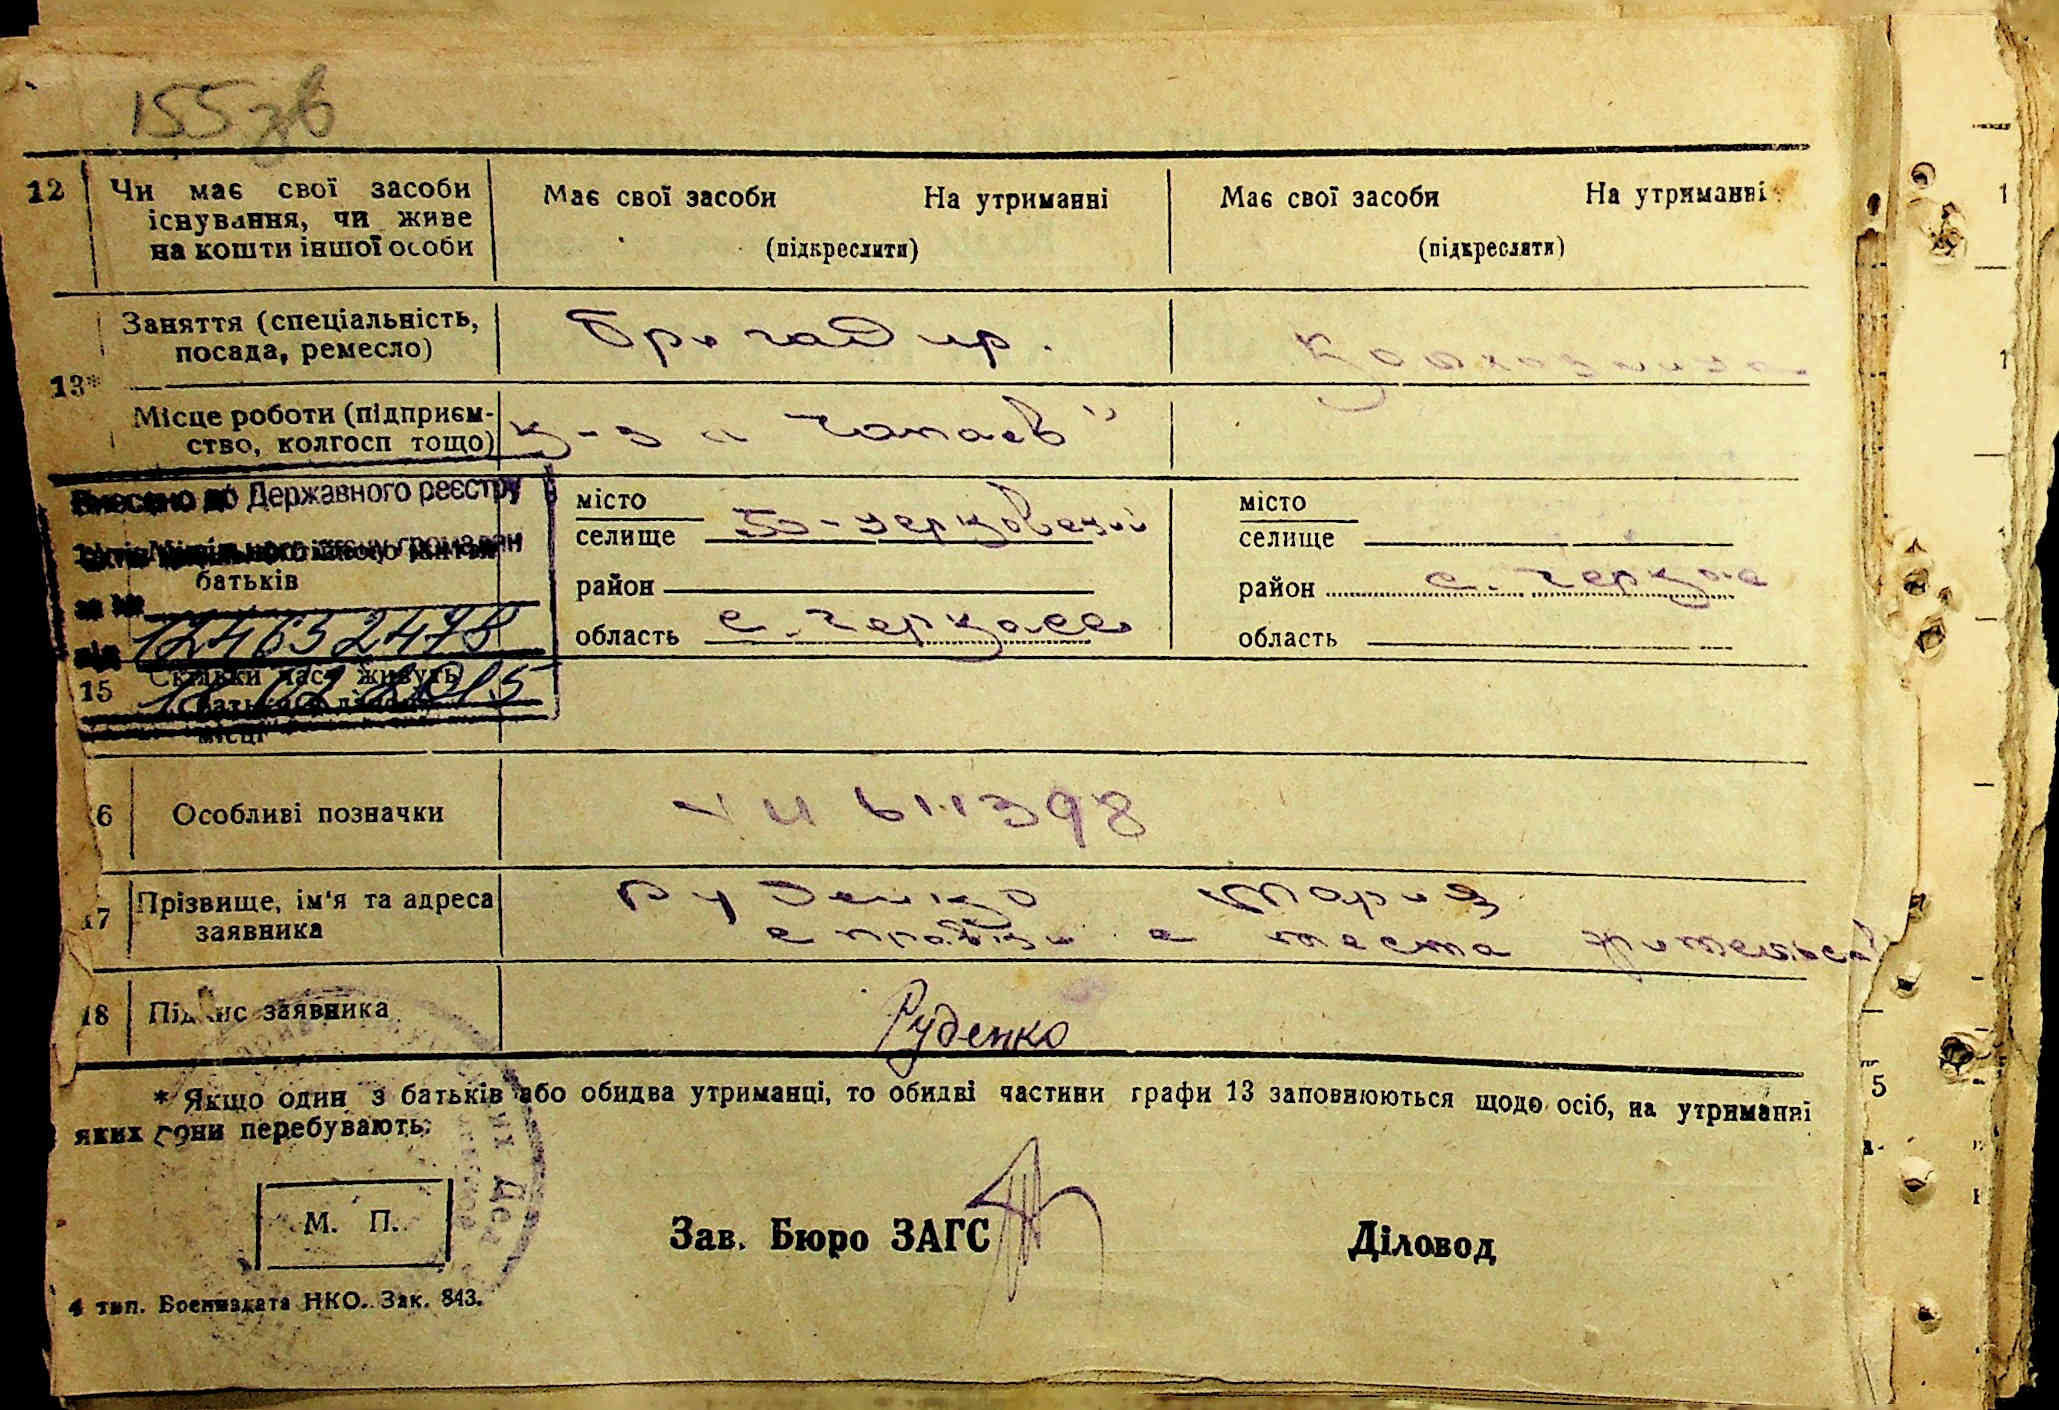 155 зв
12 Чи має свої засоби Має свої засоби На утриманні Має свої засоби На утриманні
існування, чи живе
на кошти іншої особи (підкреслити) (підкреслити)
Заняття (спеціальність, Бригадир. Колхозница
посада, ремесло)
13*
Місце роботи (підприєм- к-з „Чапаев"
ство, колгосп тощо)
Внесено до Державного реєстру
місто місто
селище селище
батьків
район район с. Черкас
за №
124632478
від область с. Черкасс область
15 Скільки часу живуть
2015
місці
6 Особливі позначки 611398
17 Прізвище, ім'я та адреса Руденко Мария
заявника справки с места жительс
18 Підпис заявника Руденко
* Якщо один з батьків або обидва утриманці, то обидві частини графи 13 заповнюються щодо осіб, на утриманні
яких вони перебувають.
М. П.
Зав. Бюро ЗАГС Діловод
4 тип. Воениздата НКО. Зак. 843.
5